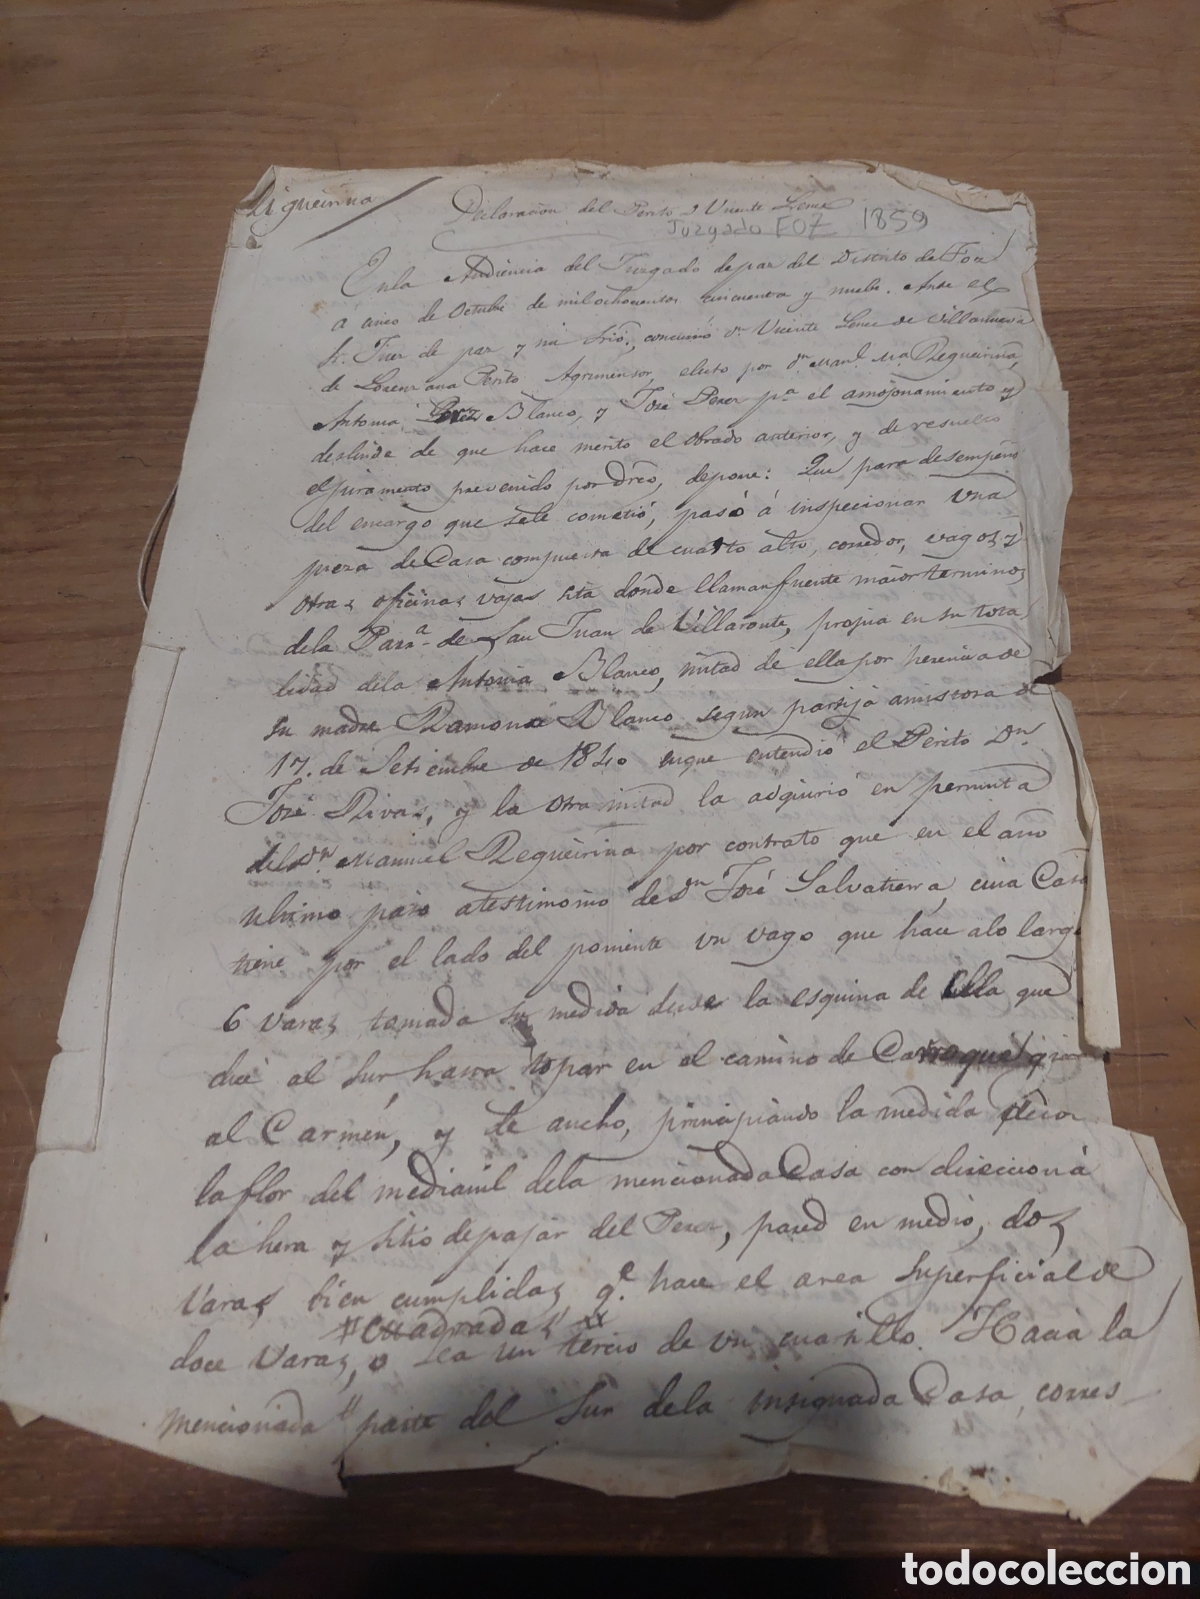 Declaración del Perito D Vicente
Juzgado FOZ 1859
En la Audiencia del Juzgado de paz del Distrito de Foz
á cinco de Octubre de mil ochocientos cincuenta y nuebe. Ante el
Sr. Juez de paz y mi Srio, concurrió Dn Vicente de Villanueva
de Lorenzana Perito Agrimensor, electo por Dn Manl. Ma. Regueirina,
Antonia Blanco, y José Perez pa el amojonamiento y
deslinde de que hace merito el obrado anterior, y de resuelto
el juramento prevenido por dro, depone: Que para desempeño
del encargo que sele cometió, pasó á inspeccionar una
pieza de Casa compuesta de cuarto alto, corredor, vagos y
otras oficinas vajas sita donde llaman fuente maior terminos
dela Parra de San Juan de Villaronte, propia en su tota
lidad dela Antonia Blanco, mitad de ella por herencia de
su madre Ramona Blanco segun partija amistosa de
17. de Setiembre de 1840 enque entendió el Perito Dn
José Rivas, y la otra mitad la adquirió en permuta
del Dn Manuel Regueirina por contrato que en el año
ultimo pasó atestimonio de Dn José Salvatierra, cuia Casa
tiene por el lado del poniente un vago que hace alo largo
6 varas tomada su medida desde la esquina de ella que
dice al Sur hasta topar en el camino de Carro que
al Carmen, y de ancho, principiando la medida
la flor del medianil dela mencionada Casa con direccion á
la hera y sitio de pajar del Perez, pared en medio, dos
varas bien cumplidas qe. hace el area superficial de
cuadradas
doce varas, o sea un tercio de un cuartillo. Hacia la
mencionada parte del Sur dela insignada Casa, corres
todocoleccion